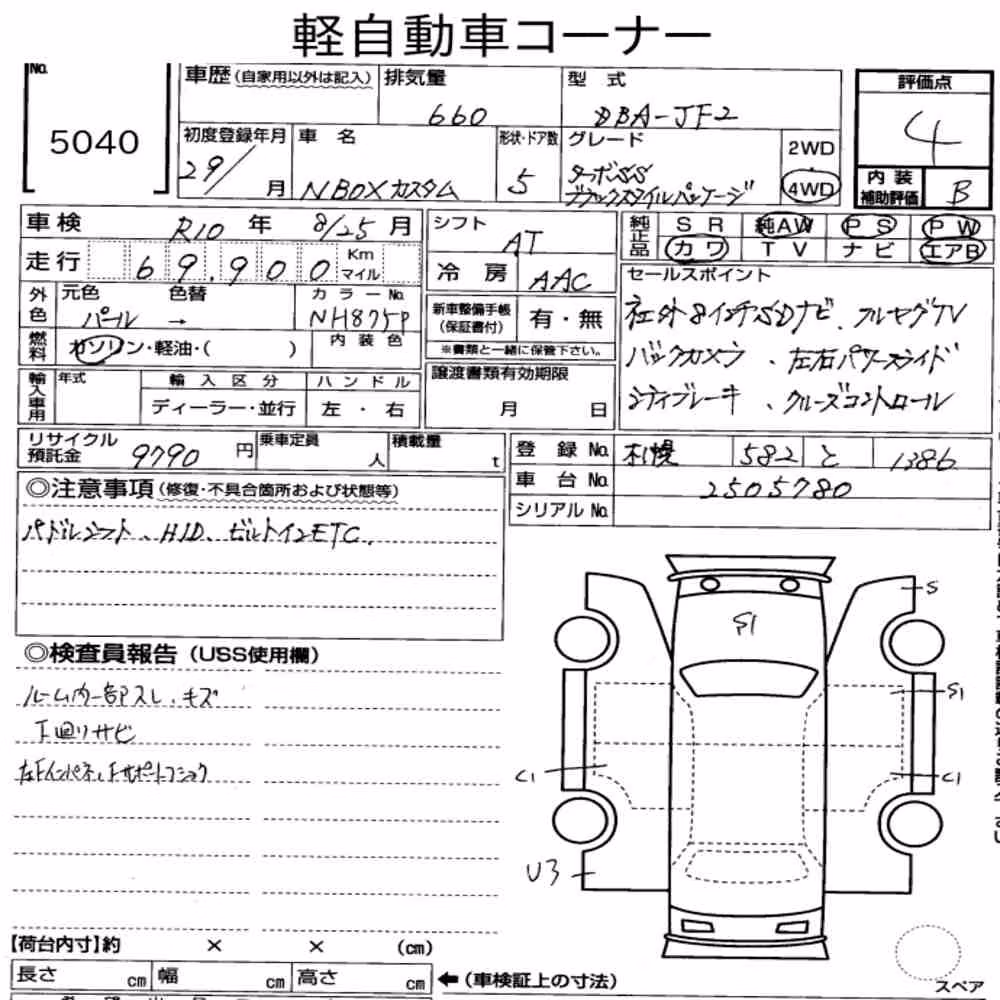 軽自動車コーナー
No.
5040
車歴 (自家用以外は記入)
排気量
660
型式
DBA-JF2
評価点
4
内装
補助評価
B
初度登録年月
29/ 月
車名
NBOXカスタム
形状・ドア数
5
グレード
ターボSS
ブラックスタイルパッケージ
2WD
4WD
車検 R10 年 8/25 月
走行 69,900 Km マイル
シフト AT
冷房 AAC
純正品
SR 純AW PS PW
カワ TV ナビ エアB
外色
元色 色替 カラーNo.
パール → NH875P
燃料
ガソリン・軽油・( )
内装色
新車整備手帳
(保証書付)
有・無
※書類と一緒に保管下さい。
セールスポイント
社外8インチSDナビ、フルセグTV
バックカメラ、左右パワースライド
シティブレーキ、クルーズコントロール
輸入車用
年式
輸入区分
ハンドル
ディーラー・並行
左・右
譲渡書類有効期限
月 日
リサイクル
預託金
9790 円
乗車定員
人
積載量
t
登録No. 札幌 582 と 1386
車台No. 2505780
シリアルNo.
◎注意事項 (修復・不具合箇所および状態等)
パドルシフト、HID、ビルトインETC、
◎検査員報告 (USS使用欄)
ルーム内一部スレ、キズ
下廻りサビ
S
S1
S1
C1
C1
U3
【荷台内寸】約 × × (cm)
長さ cm 幅 cm 高さ cm
←(車検証上の寸法)
スペア